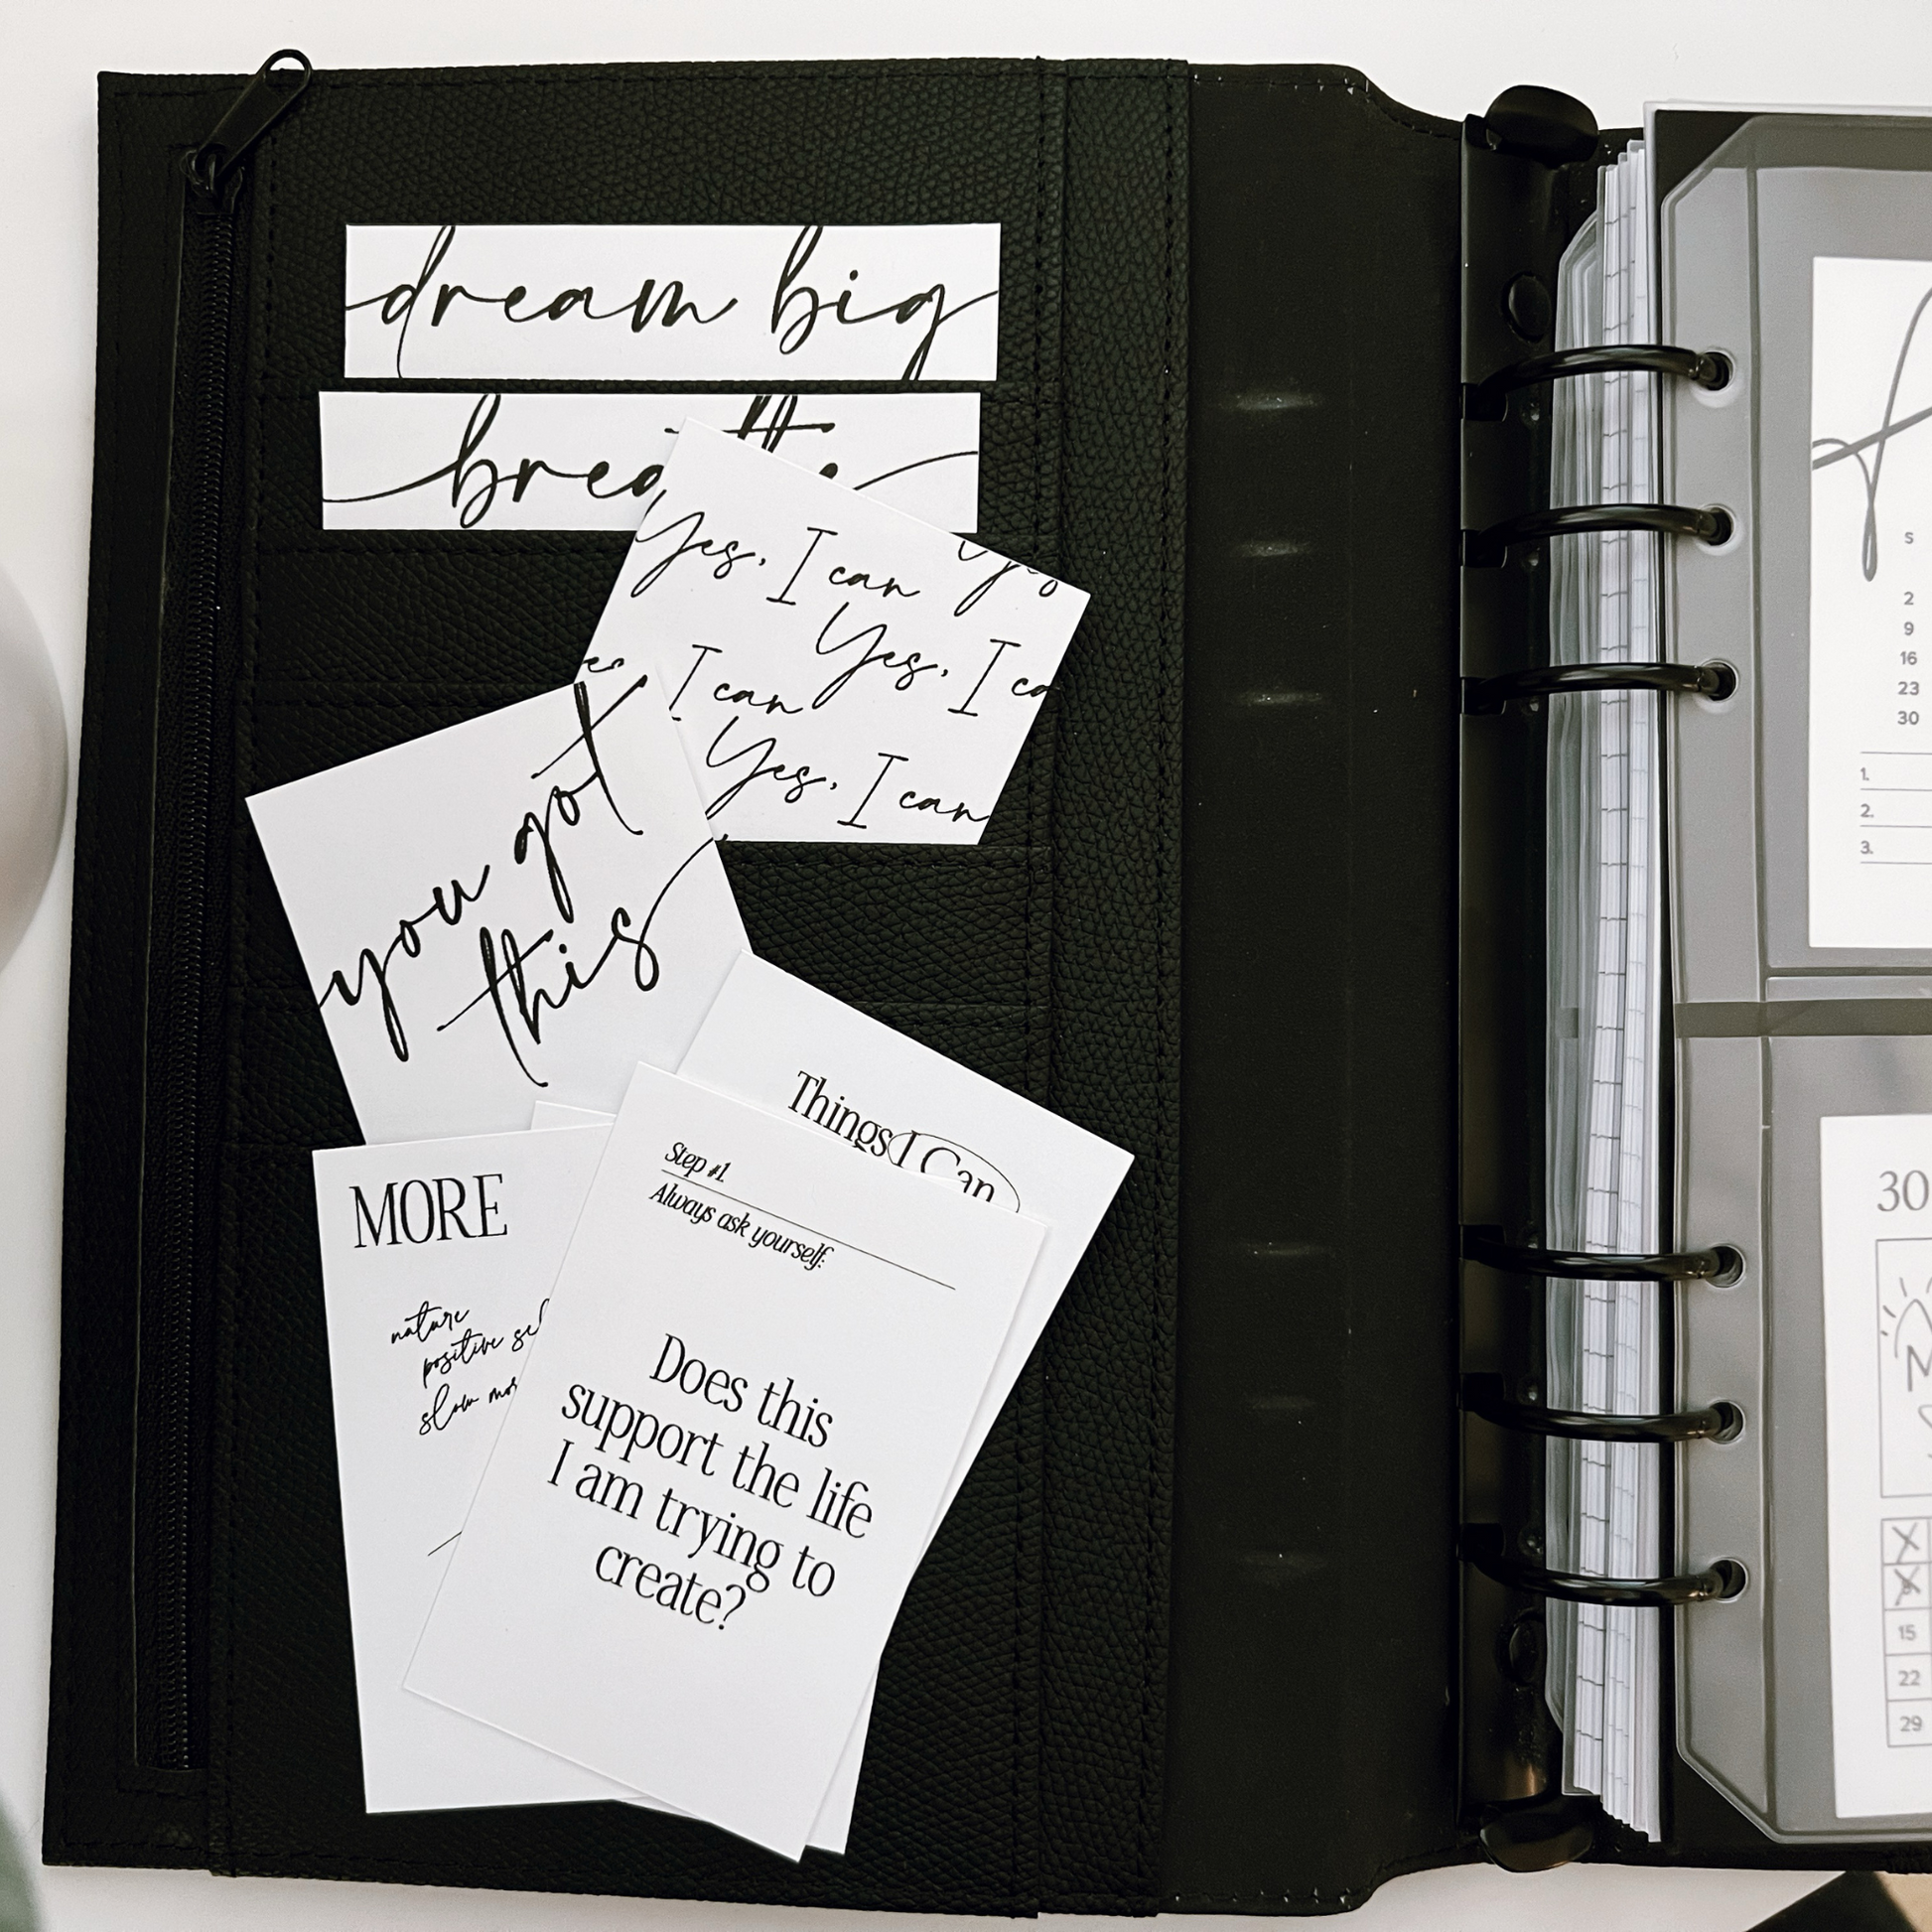 dream big
Yes, I can
Yes, I
I can
Yes, I can
you got
this
Things I Can
Step #1
Always ask yourself:
Does this
support the life
I am trying to
create?
MORE
nature
positive
slow
S
2
9
16
23
30
1.
2.
3.
30
15
22
29